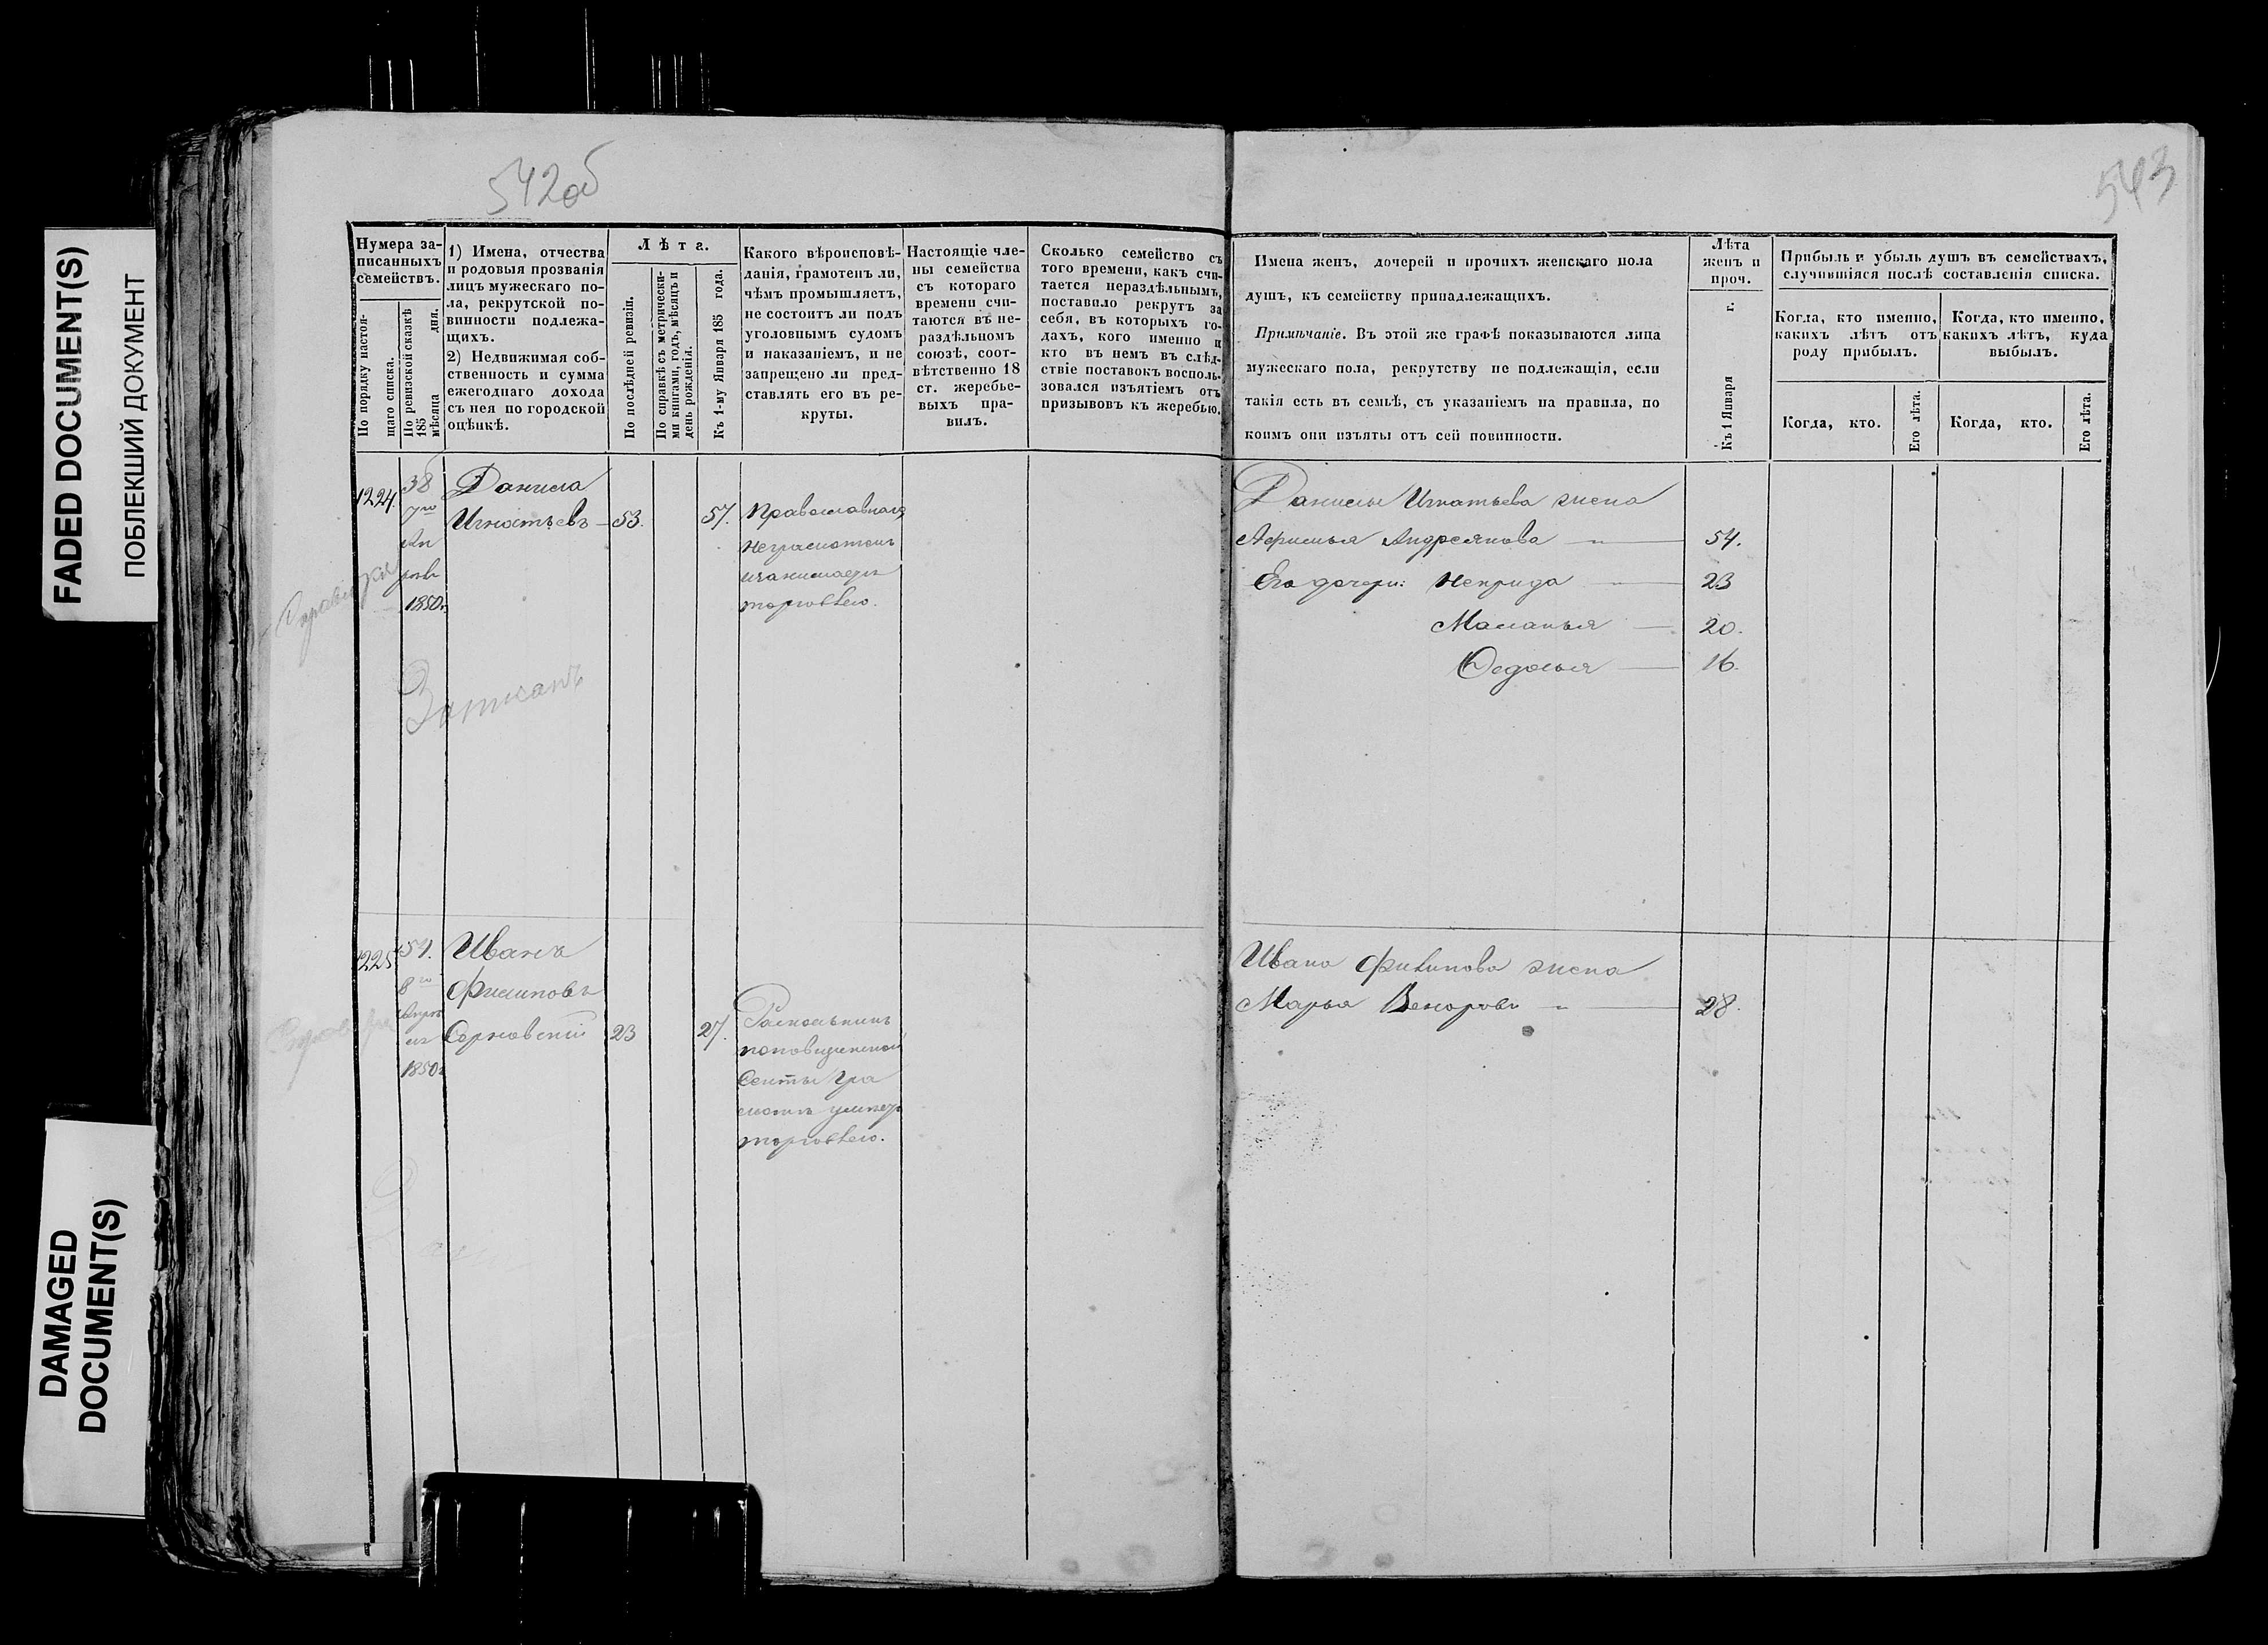 FADED DOCUMENT(S)
ПОБЛЕКШИЙ ДОКУМЕНТ
DAMAGED
DOCUMENT(S)
542об
543
Нумера за-
писанныхъ
семействъ.
По порядку настоя-
щаго списка.
По ревизской сказкѣ
185 дня.
мѣсяца
1) Имена, отчества
и родовыя прозванія
лицъ мужескаго по-
ла, рекрутской по-
винности подлежа-
щихъ.
2) Недвижимая соб-
ственность и сумма
ежегоднаго дохода
съ нея по городской
оцѣнкѣ.
Лѣта.
По послѣдней ревизіи.
По справкѣ съ метрически-
ми книгами, годъ, мѣсяцъ и
день рожденія.
Къ 1-му Января 185 года.
Какого вѣроисповѣ-
данія, грамотенъ ли,
чѣмъ промышляетъ,
не состоитъ ли подъ
уголовнымъ судомъ
и наказаніемъ, и не
запрещено ли пред-
ставлять его въ ре-
круты.
Настоящіе чле-
ны семейства
съ котораго
времени счи-
таются въ не-
раздѣльномъ
союзѣ, соот-
вѣтственно 18
ст. жеребье-
выхъ пра-
вилъ.
Сколько семейство съ
того времени, какъ счи-
тается нераздѣльнымъ,
поставило рекрутъ за
себя, въ которыхъ го-
дахъ, кого именно и
кто въ немъ въ слѣд-
ствіе поставокъ восполь-
зовался изъятіемъ отъ
призывовъ къ жеребью.
Имена женъ, дочерей и прочихъ женскаго пола
душъ, къ семейству принадлежащихъ.
Примѣчаніе. Въ этой же графѣ показываются лица
мужескаго пола, рекрутству не подлежащія, если
такія есть въ семьѣ, съ указаніемъ на правила, по
коимъ они изъяты отъ сей повинности.
Лѣта
женъ и
проч.
Къ 1 Января г.
Прибыль и убыль душъ въ семействахъ,
случившіяся послѣ составленія списка.
Когда, кто именно,
какихъ лѣтъ отъ
роду прибылъ.
Когда, кто именно,
какихъ лѣтъ, куда
выбылъ.
Когда, кто.
Его лѣта.
Когда, кто.
Его лѣта.
1224.
38
7го
Ап
рѣля
1850г.
Данила
Игнатьевъ
53.
57.
Православнаго
неграмотенъ
и занимаетъ
торговлею.
Записанъ
Данилы Игнатьева жена
Афимья Андреянова
54.
Его дочери:
23
Маланья
20.
Федосья
16.
1225
51.
8го
Апрѣ
ля
1850г
Иванъ
Филиповъ
23
27.
Раскольникъ
поповщинской
Секты Гра
торговлею.
Ивана Филипова жена
Марья
28.